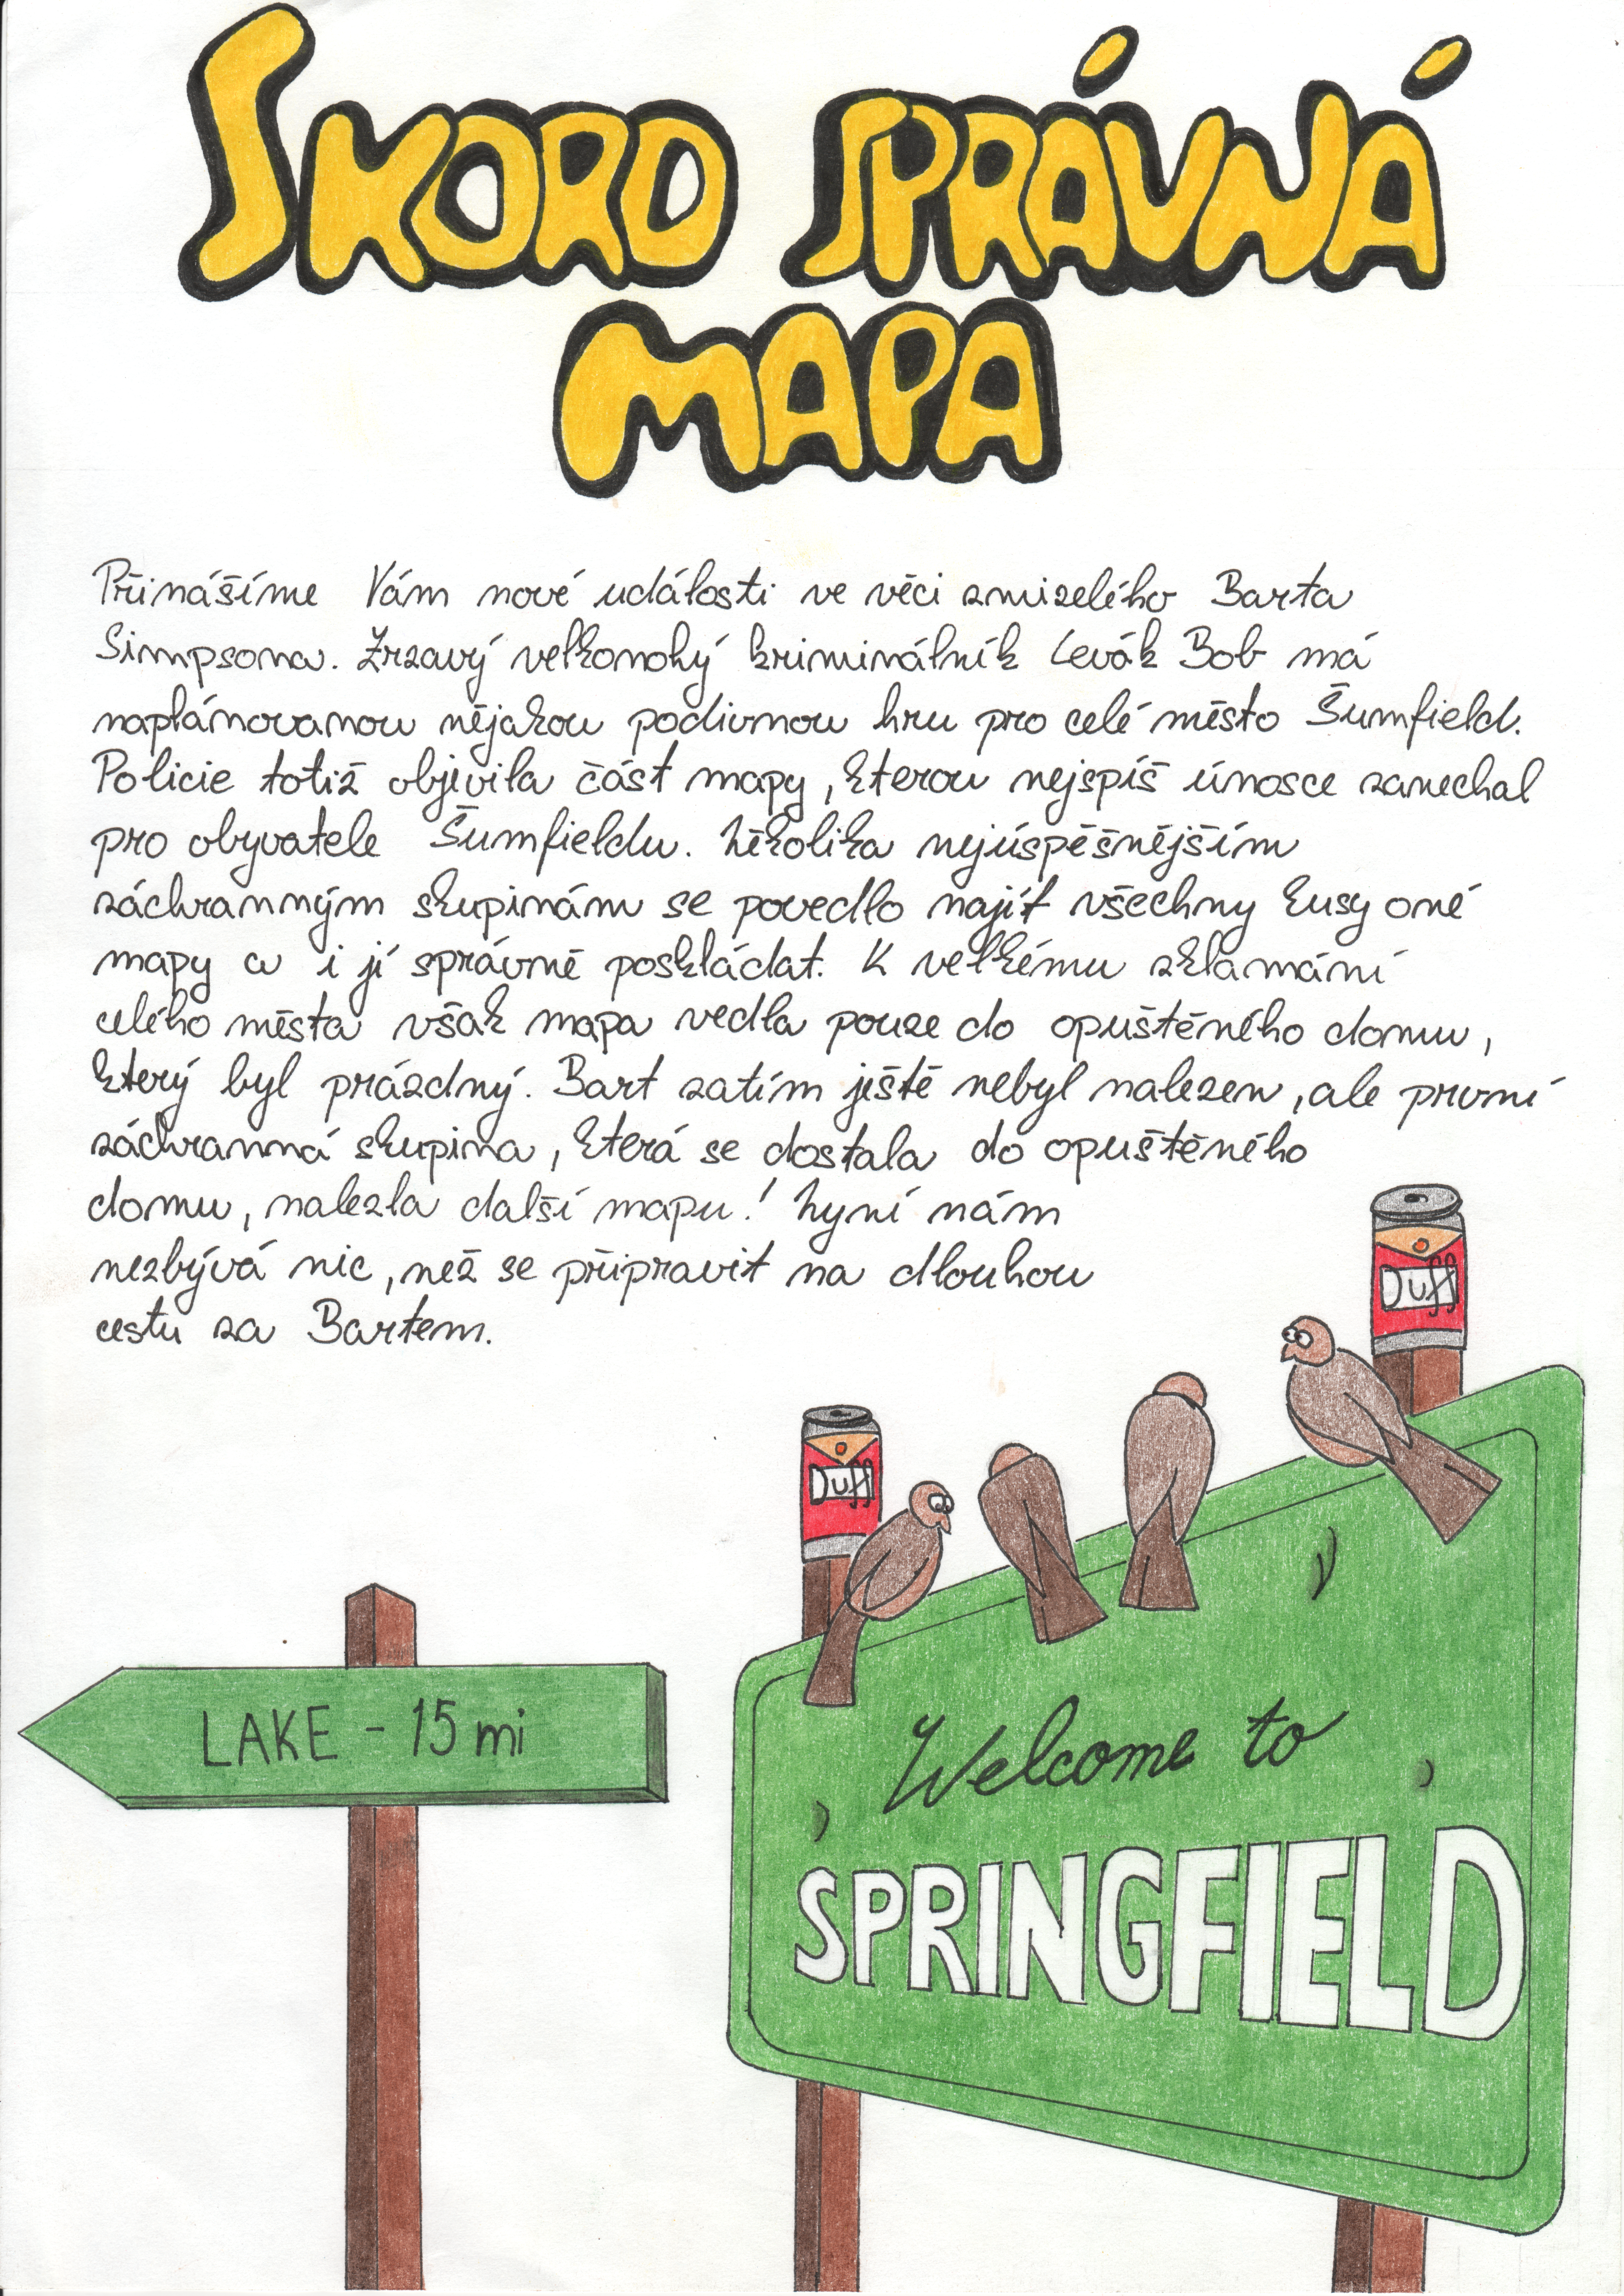 SKORO SPRÁVNÁ
MAPA
Přinášíme Vám nové události ve věci zmizelého Barta
Simpsona. Zrzavý velkonohý kriminálník Levák Bob má
naplánovanou nějakou podivnou hru pro celé město Šumfield.
Policie totiž objevila část mapy, kterou nejspíš únosce zanechal
pro obyvatele Šumfieldu. Několika nejúspěšnějším
záchranným skupinám se povedlo najít všechny kusy oné
mapy a i jí správně poskládat. K velkému zklamání
celého města však mapa vedla pouze do opuštěného domu,
který byl prázdný. Bart zatím ještě nebyl nalezen, ale první
záchranná skupina, která se dostala do opuštěného
domu, nalezla další mapu! Nyní nám
nezbývá nic, než se připravit na dlouhou
cestu za Bartem.
Duff
Duff
LAKE - 15 mi
Welcome to
SPRINGFIELD